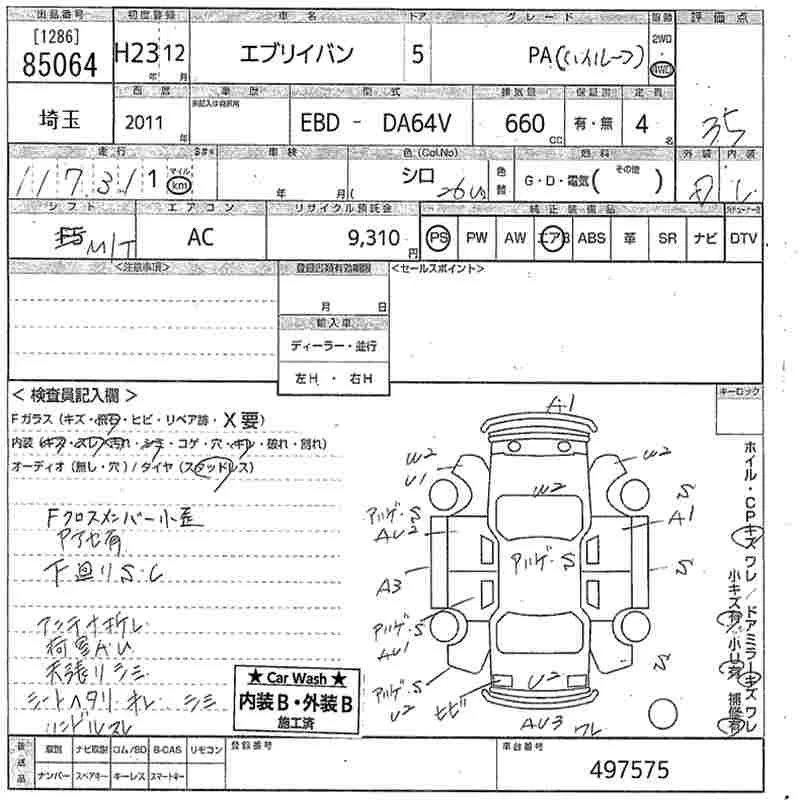 出品番号 初度登録 車名 ドア グレード 駆動 評価点
[1286]
85064 H23 12 エブリイバン 5 PA(ハイルーフ) 2WD・4WD
年 月
西暦 車歴 型式 排気量 保証書 定員
埼玉 2011年 未記入は自家用 EBD - DA64V 660cc 有・無 4名 3.5
走行 車検 色(Col.No) 燃料 外装 内装
117,311 マイル km 年 月( シロ 26U) 色替 G・D・電気( その他 ) D C
シフト エアコン リサイクル預託金 純正装備品
F5 M/T AC 9,310円 PS PW AW エアB ABS 革 SR ナビ DTV
<注意事項> 登録書類有効期限 <セールスポイント>
月 日
輸入車
ディーラー・並行
左H・右H
< 検査員記入欄 > キーロック
Fガラス (キズ・飛石・ヒビ・リペア跡・X要)
内装 (キズ・スレ・汚れ・シミ・コゲ・穴・キレ・破れ・割れ)
オーディオ (無し・穴) / タイヤ (スタッドレス)
Fクロスメンバー小歪
下廻りS.C
アンテナオレ
荷室AU
天張りシミ
シートヘタリ オレ シミ
ハンドルスレ
A1
W2
U1
W2
W2
S
A1
アルゲ・S
AU2
アルゲ・S
S
A3
アルゲ・S
AU1
S
アルゲ・S
U2
ヒビ
U2
AU3
ワレ
ホイル・CPキズ ワレ / ドアミラーキズ ワレ
小キズ有 小U有 補修有
★ Car Wash ★
内装B・外装B
施工済
後送品 取説 ナビ取説 コム/SD B-CAS リモコン 登録番号 車台番号
ナンバー スペアキー キーレス スマートキー 497575